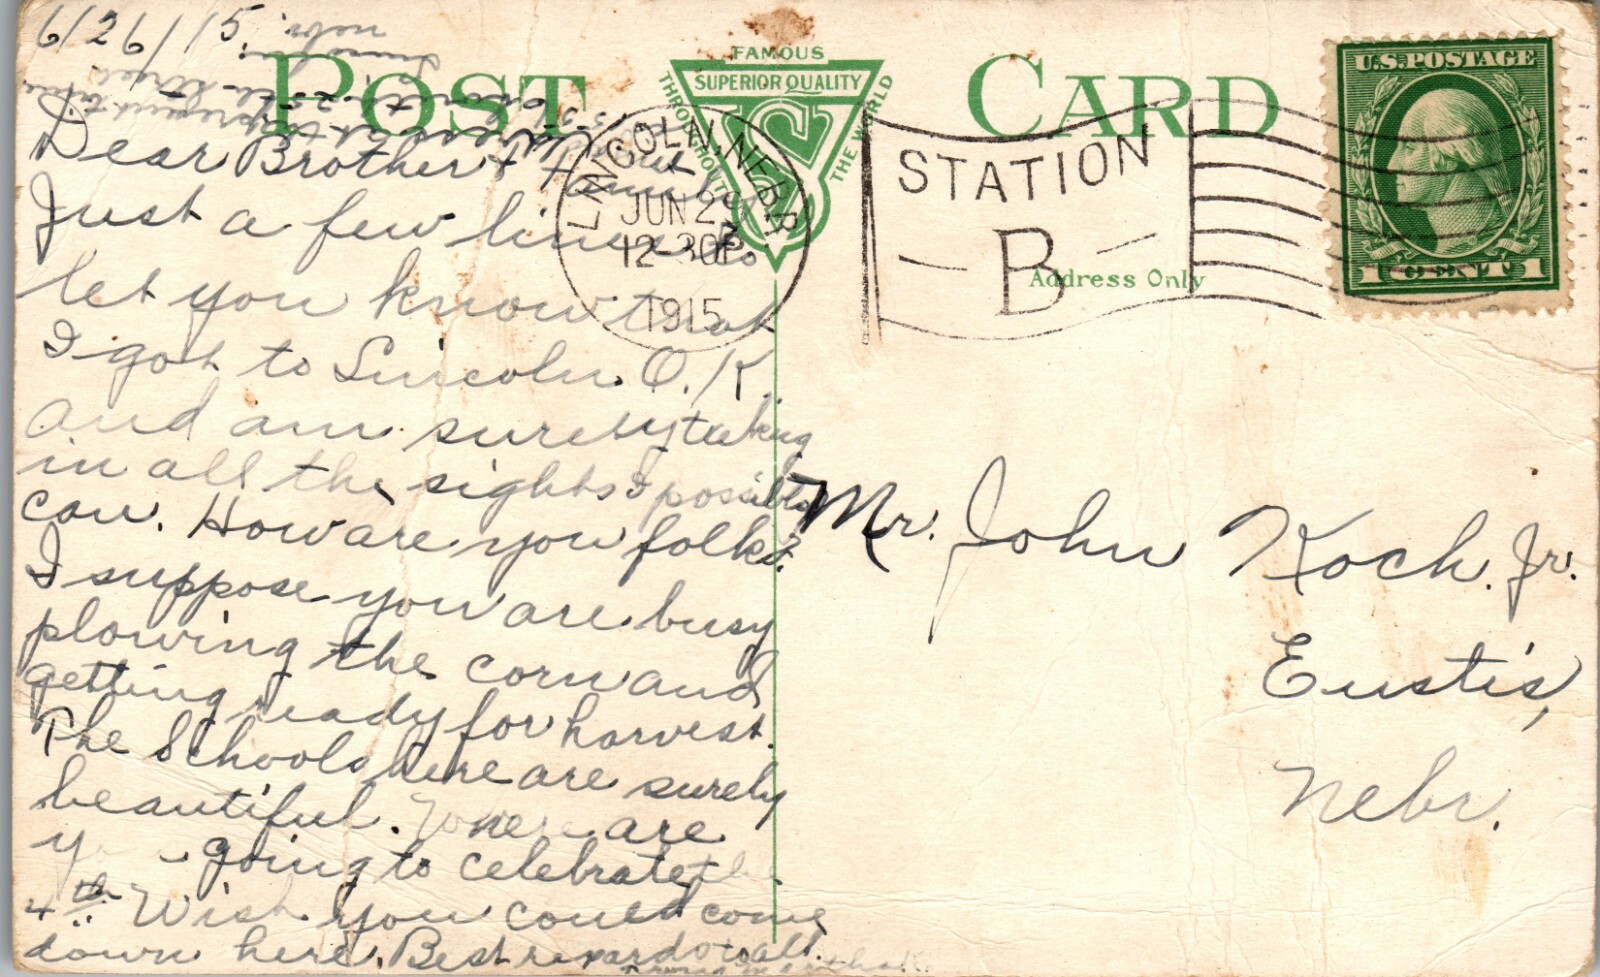 6/26/15.
Nebr
Lincoln
POST CARD
FAMOUS
SUPERIOR QUALITY
THROUGHOUT THE WORLD
LINCOLN, NEBR.
JUN 2
12-30P
1915
STATION
B
U.S. POSTAGE
1 CENT 1
Address Only
Dear Brother & Family
Just a few lines to
let you know that
I got to Lincoln O.K.
and am surely taking
in all the sights I possibly
can. How are you folks?
I suppose you are busy
plowing the corn and
getting ready for harvest.
The Schools here are surely
beautiful. Where are
you going to celebrate the
4th. Wish you could come
down here. Best regards to all.
Mr. John Koch. Jr.
Eustis,
Nebr.